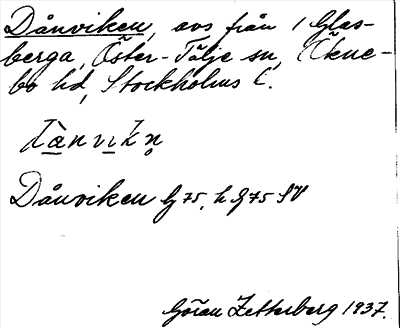 Dånviken, avs från 1 Glas-
berga, Öster-Tälje sn, Ökne-
bo hd, Stockholms l.
dànvikn̥
Dånviken G 75, h 75 SV
Göran Zetterberg 1937.